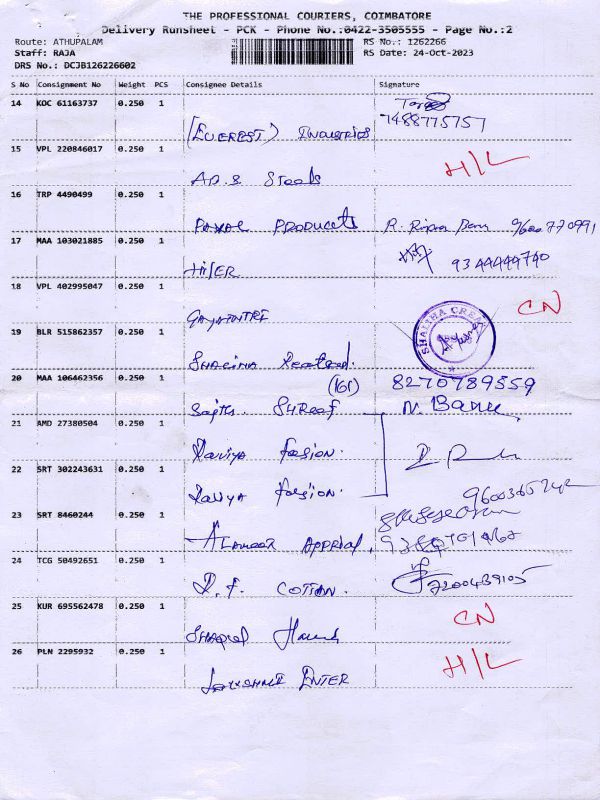 THE PROFESSIONAL COURIERS, COIMBATORE
Delivery Runsheet - PCK - Phone No.:0422-3505555 - Page No.:2
Route: ATHUPALAM RS No.: 1262266
Staff: RAJA RS Date: 24-Oct-2023
DRS No.: DCJB126226602
S No Consignment No Weight PCS Consignee Details Signature
14 KOC 61163737 0.250 1
7488775757
(EVEREST) Industries
15 VPL 220846017 0.250 1 H/L
AP.S Steels
16 TRP 4490499 0.250 1
PAYAL PRODUCTS R. 9600770991
17 MAA 103021885 0.250 1
HIFER 9344449740
18 VPL 402995047 0.250 1 CN
GAYATHTRI
19 BLR 515862357 0.250 1 SHALIHA CREA
20 MAA 106462356 0.250 1 (IGS) 8270789559
N. Banu
21 AMD 27380504 0.250 1
Kaviya Fasion.
22 SRT 302243631 0.250 1
Kaviya Fasion.
23 SRT 8460244 0.250 1
24 TCG 50492651 0.250 1
R.F. COTTON. 7200439105
25 KUR 695562478 0.250 1 CN
26 PLN 2295932 0.250 1 H/L
ENTER